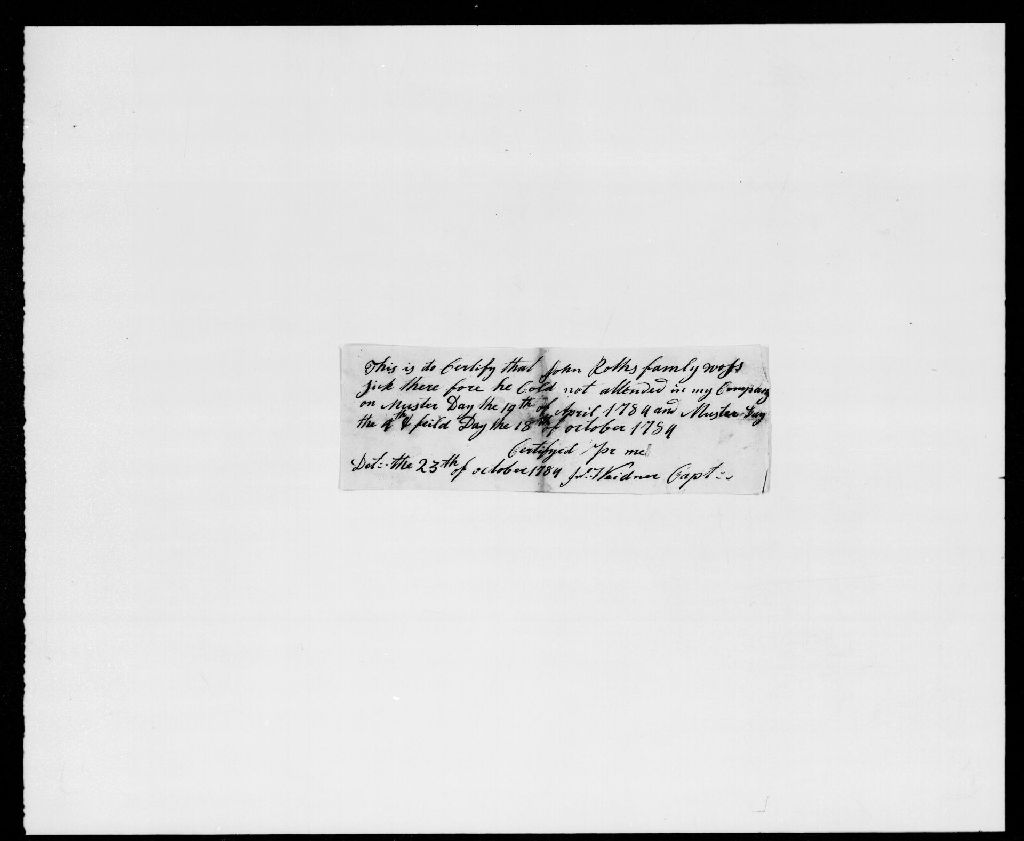 This is to Certify that John Roths famly wofs
sick there fore he Cold not attended in my Company
on Muster Day the 19th of April 1784 and Muster Day
the 4th & feild Day the 18th of october 1784
Certifyed pr me
Det: the 23th of october 1784 Jn: Weidner Capt: